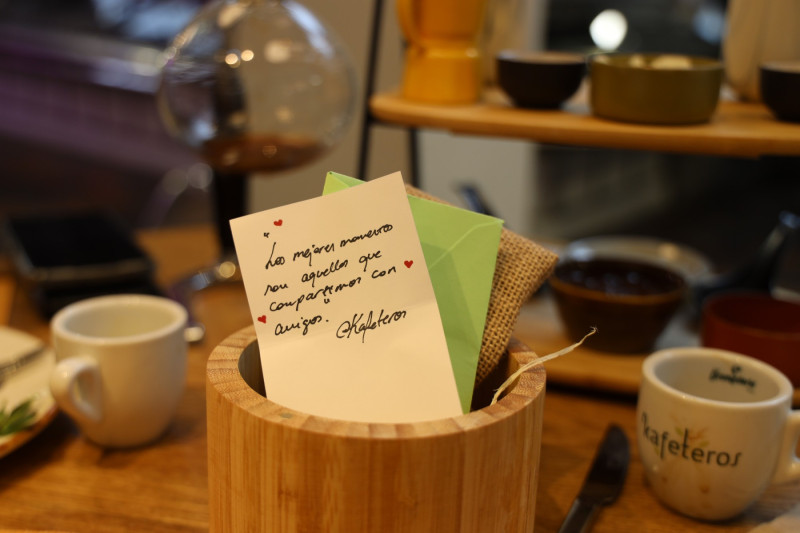 "Los mejores momentos
son aquellos que
compartimos con
amigos."
@Kafeteros
kafeteros